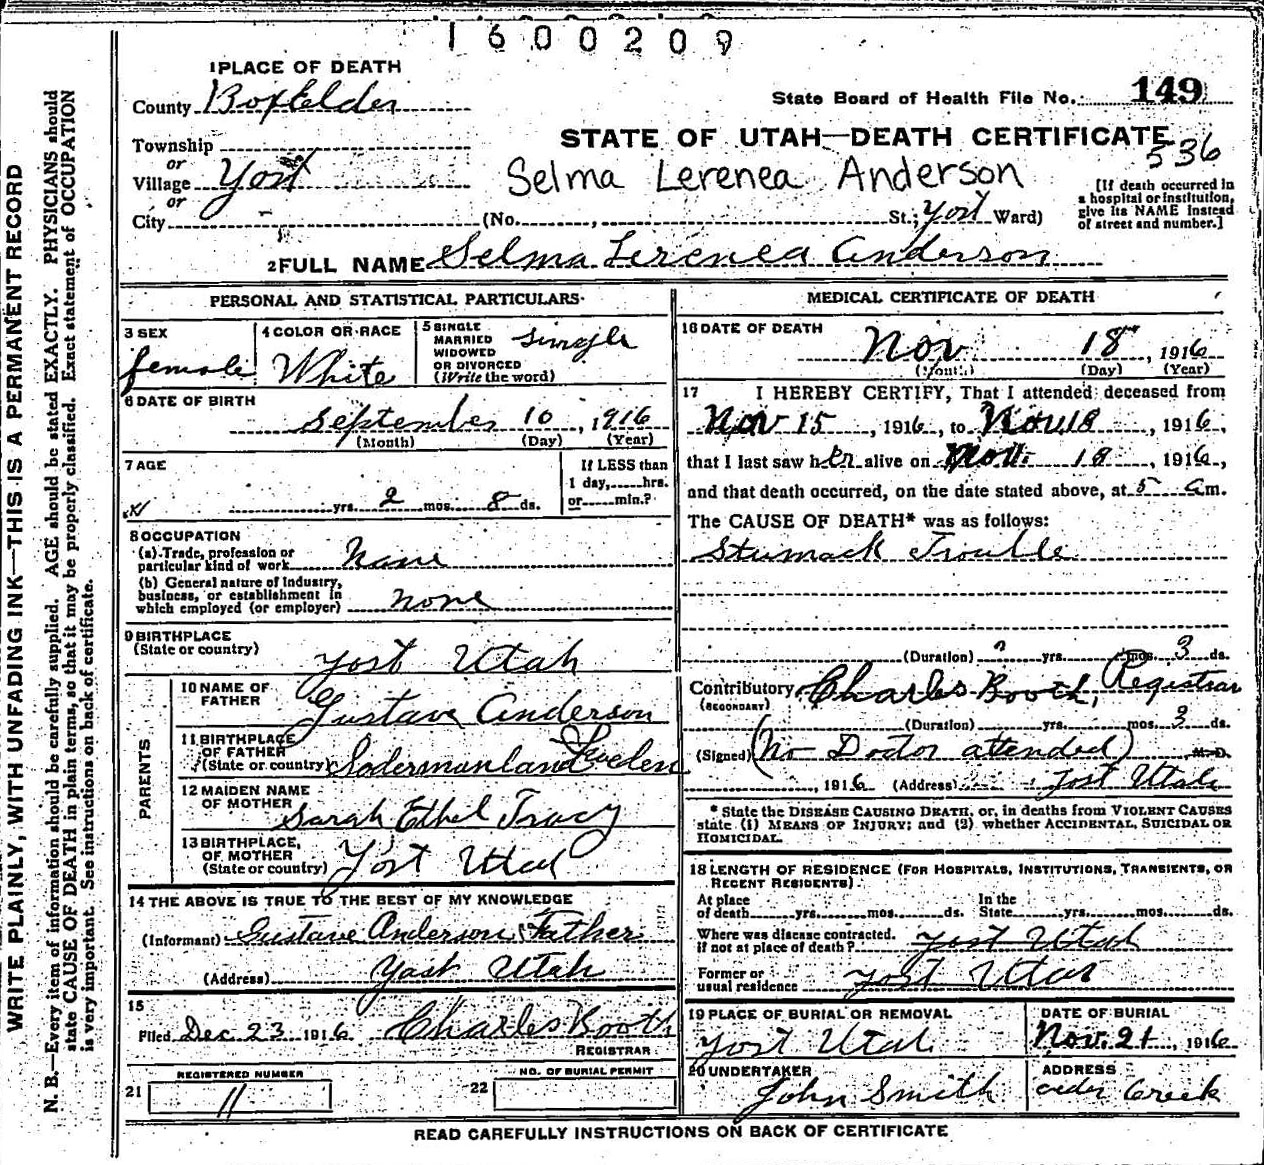 1600209
1 PLACE OF DEATH
County Box Elder
State Board of Health File No. 149
STATE OF UTAH—DEATH CERTIFICATE
536
Township
or
Village Yost
or
City
Selma Lerenea Anderson
(No. , St.; Yost Ward)
[If death occurred in
a hospital or institution,
give its NAME instead
of street and number.]
2 FULL NAME Selma Lerenea Anderson
PERSONAL AND STATISTICAL PARTICULARS
3 SEX
female
4 COLOR OR RACE
White
5 SINGLE
MARRIED
WIDOWED
OR DIVORCED
(Write the word)
single
6 DATE OF BIRTH
September 10, 1916
(Month) (Day) (Year)
7 AGE
yrs. 2 mos. 8 ds.
If LESS than
1 day, hrs.
or min.?
8 OCCUPATION
(a) Trade, profession or
particular kind of work None
(b) General nature of industry,
business, or establishment in
which employed (or employer) none
9 BIRTHPLACE
(State or country)
Yost Utah
PARENTS
10 NAME OF
FATHER
Gustave Anderson
11 BIRTHPLACE
OF FATHER
(State or country) Sodermanland Sweden
12 MAIDEN NAME
OF MOTHER
Sarah Ethel Tracy
13 BIRTHPLACE,
OF MOTHER
(State or country) Yost Utah
14 THE ABOVE IS TRUE TO THE BEST OF MY KNOWLEDGE
(Informant) Gustave Anderson Father
(Address) Yost Utah
15
Filed Dec 23 1916 Charles Booth
REGISTRAR
21 REGISTERED NUMBER
11
22 NO. OF BURIAL PERMIT
MEDICAL CERTIFICATE OF DEATH
16 DATE OF DEATH
Nov 18, 1916
(Month) (Day) (Year)
17 I HEREBY CERTIFY, That I attended deceased from
Nov 15, 1916, to Nov 18, 1916,
that I last saw her alive on Nov. 18, 1916,
and that death occurred, on the date stated above, at 5 a m.
The CAUSE OF DEATH* was as follows:
Stumack Trouble
(Duration) yrs. mos. 3 ds.
Contributory Charles Booth, Registrar
(SECONDARY)
(Duration) yrs. mos. 3 ds.
(Signed) (No Doctor attended) M.D.
, 1916 (Address) Yost Utah
* State the DISEASE CAUSING DEATH, or, in deaths from VIOLENT CAUSES
state (1) MEANS OF INJURY; and (2) whether ACCIDENTAL, SUICIDAL OR
HOMICIDAL.
18 LENGTH OF RESIDENCE (FOR HOSPITALS, INSTITUTIONS, TRANSIENTS, OR
RECENT RESIDENTS)
At place
of death yrs. mos. ds.
In the
State yrs. mos. ds.
Where was disease contracted.
if not at place of death? Yost Utah
Former or
usual residence Yost Utah
19 PLACE OF BURIAL OR REMOVAL
Yost Utah
DATE OF BURIAL
Nov. 21, 1916
20 UNDERTAKER
John Smith
ADDRESS
Creek
READ CAREFULLY INSTRUCTIONS ON BACK OF CERTIFICATE
WRITE PLAINLY, WITH UNFADING INK—THIS IS A PERMANENT RECORD
N. B.—Every item of information should be carefully supplied. AGE should be stated EXACTLY. PHYSICIANS should
state CAUSE OF DEATH in plain terms, so that it may be properly classified. Exact statement of OCCUPATION
is very important. See instructions on back of certificate.